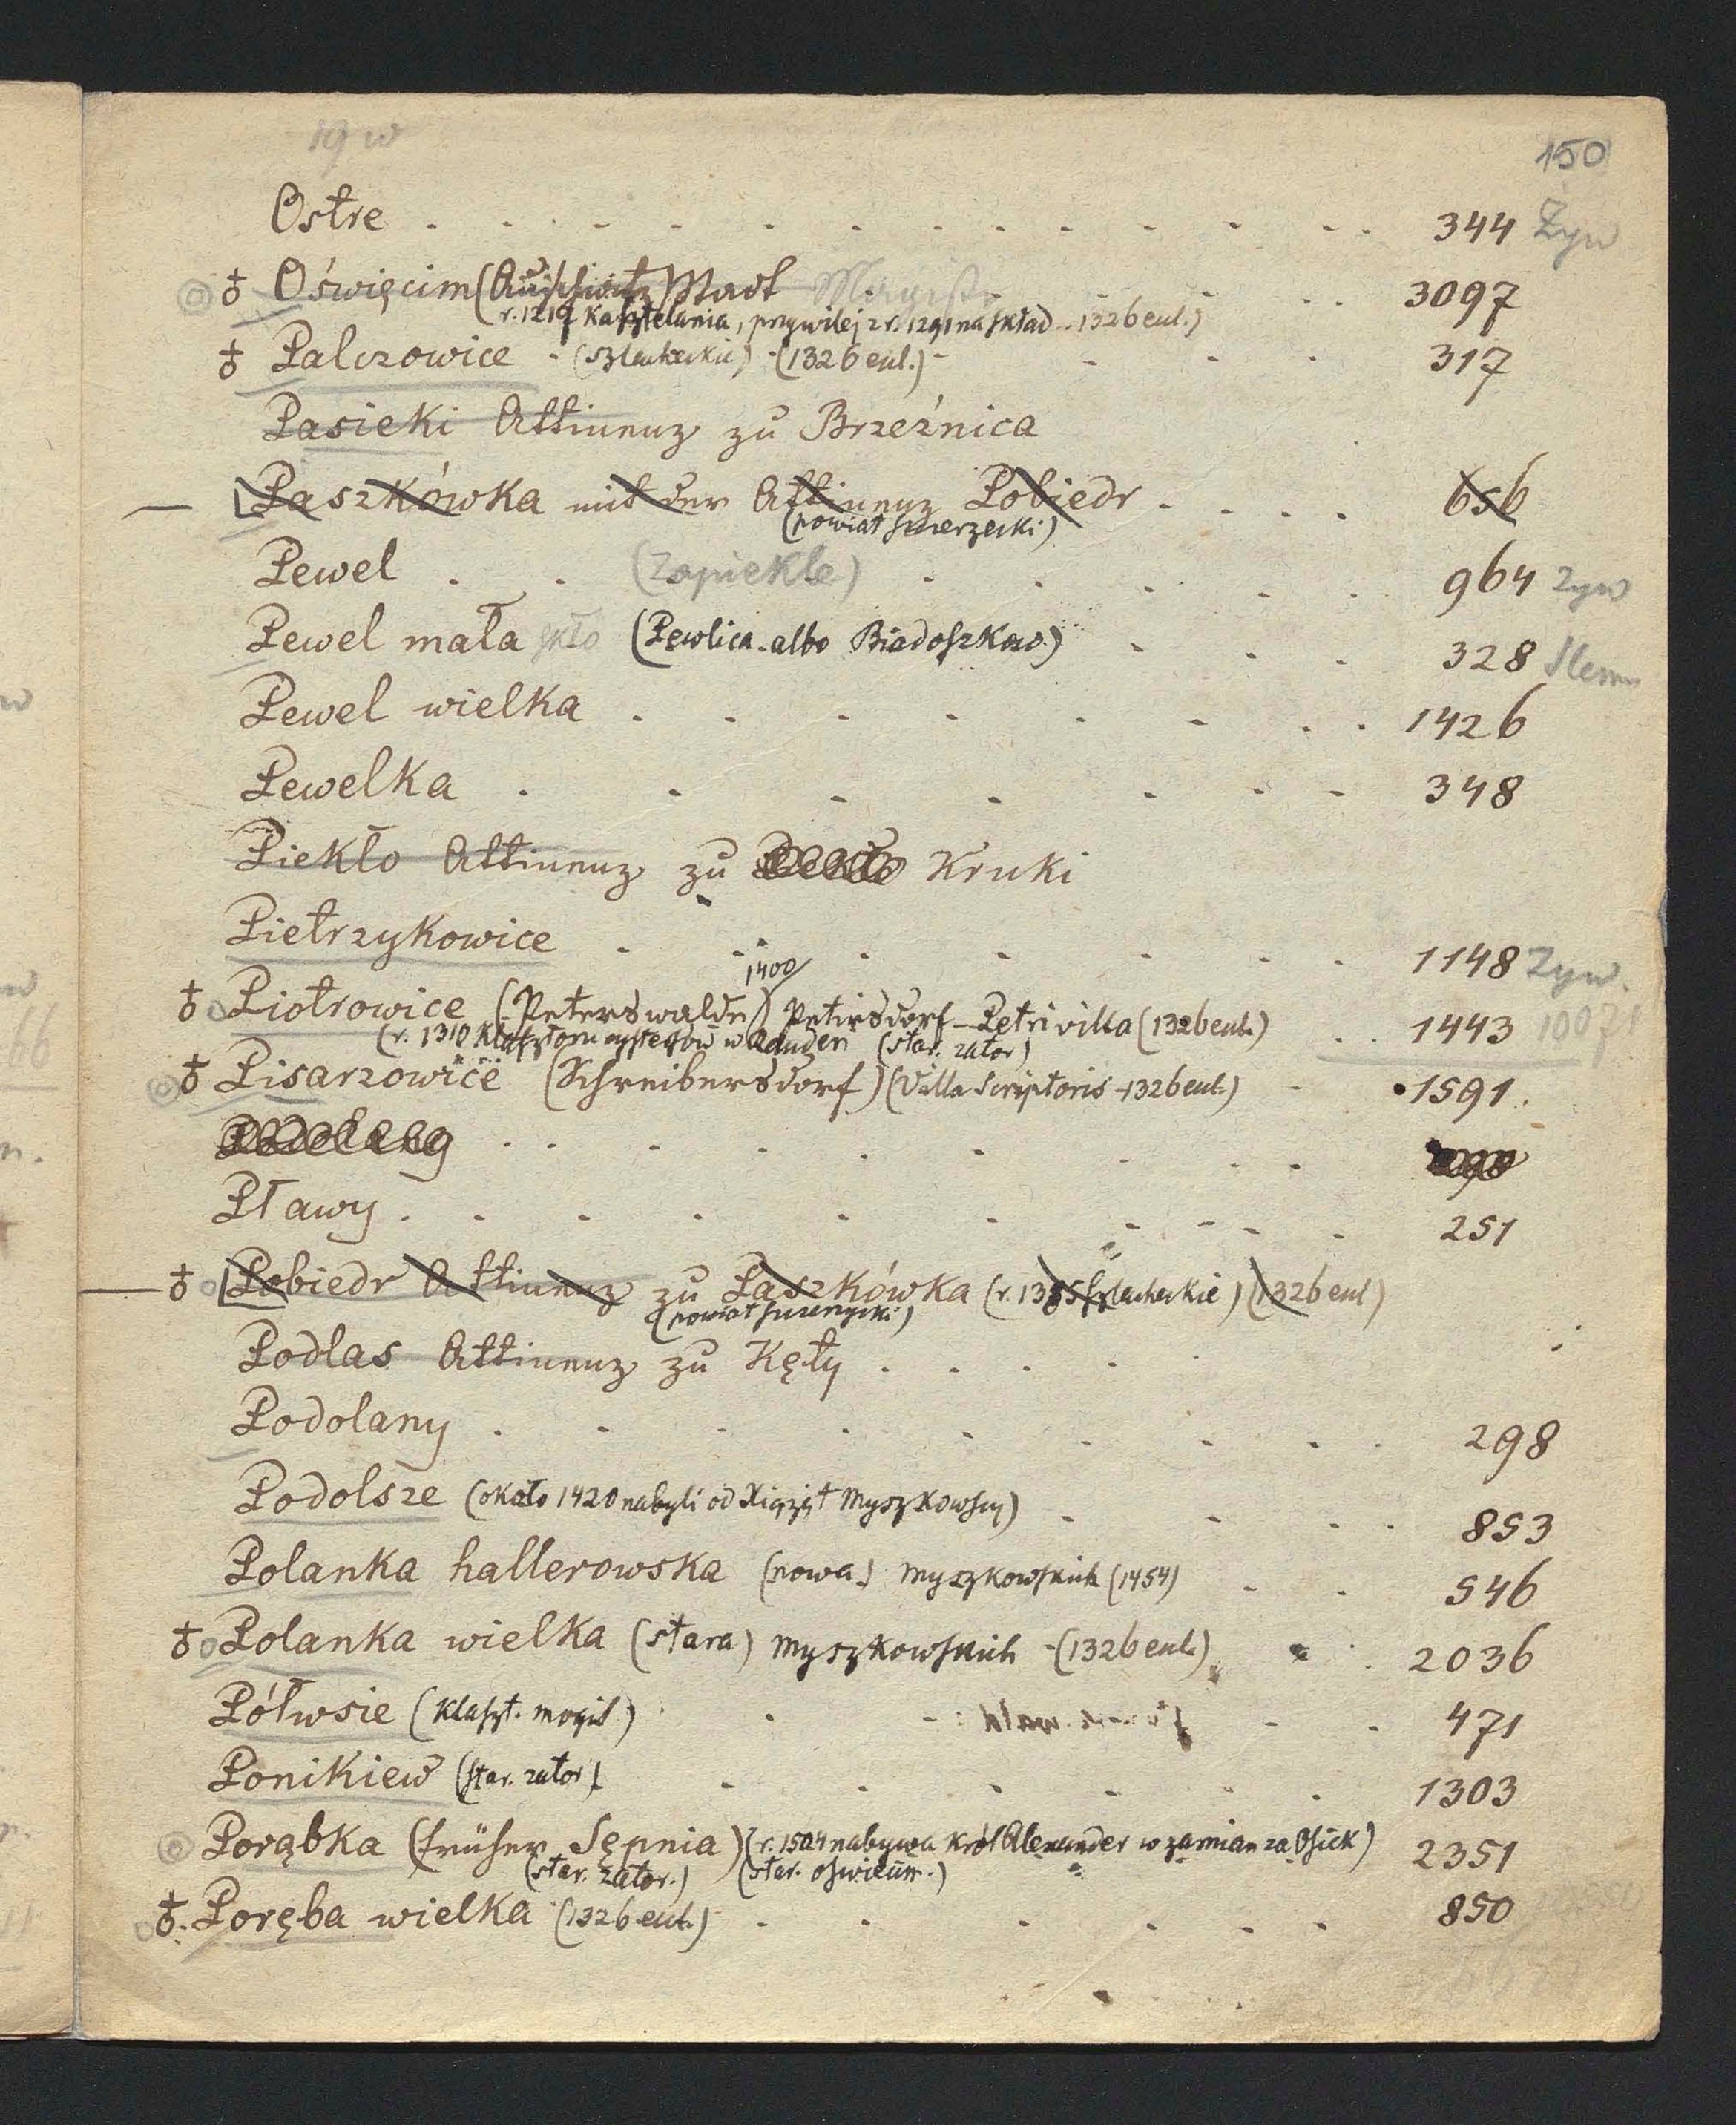 19 w
150
Ostre . . . . . . . . . . . . 344 Żyw
♁ Oświęcim (Auschwitz) Stadt Magistr . . 3097
(r. 1217 Kasztelania, przywilej z r. 1291 na skład - 1326 eul.)
♁ Palczowice - (szlacheckie) - (1326 eul.) - - - 317
Pasieki Attinenz zu Brzeźnica
— Paszkówka mit der Attinenz Pobiedr . . . . 656
(powiat
Pewel . . (Zapiekle) . . . . . 964 Żyw
Pewel mała (Pewlica albo Biadoszkow.) . . . . 328 Ślem
Pewel wielka . . . . . . . . 1426
Pewelka . . . . . . . 348
Piekło Attinenz zu Kruki
Pietrzykowice . . . . . . . 1148 Żyw.
1400
♁ Piotrowice (Peterswalde) Petirsdorf - Petri villa (1326 eul.) . . 1443
(r. 1310 Klasztoru cystersów w Rauden (star. zator)
♁ Pisarzowice (Schreibersdorf) (Villa Scriptoris - 1326 eul.) - 1591.
Pławy . . . . . . . . . . 251
— ♁ Pobiedr Attinenz zu Paszkówka (r. 1385 szlacheckie) (1326 eul)
(powiat
Podlas Attinenz zu Kęty . . . . .
Podolany . . . . . . . . . 298
Podolsze (około 1420 nabyli od Xiążąt Myszkowscy) . . . . 853
Polanka hallerowska (nowa) Myszkowskich (1454) . . 546
♁ Polanka wielka (stara) Myszkowskich - (1326 eul.) . . 2036
Półwsie (Klaszt. mogil) . . . . . 471
Ponikiew (star. zator) . . . . . . 1303
Porąbka (früher Sępnia) (r. 1504 nabywa Król Alexander w zamian za Osiek) 2351
(star. zator.) (star. oświecim.)
♁ Poręba wielka (1326 eul.) . . . . . . 850